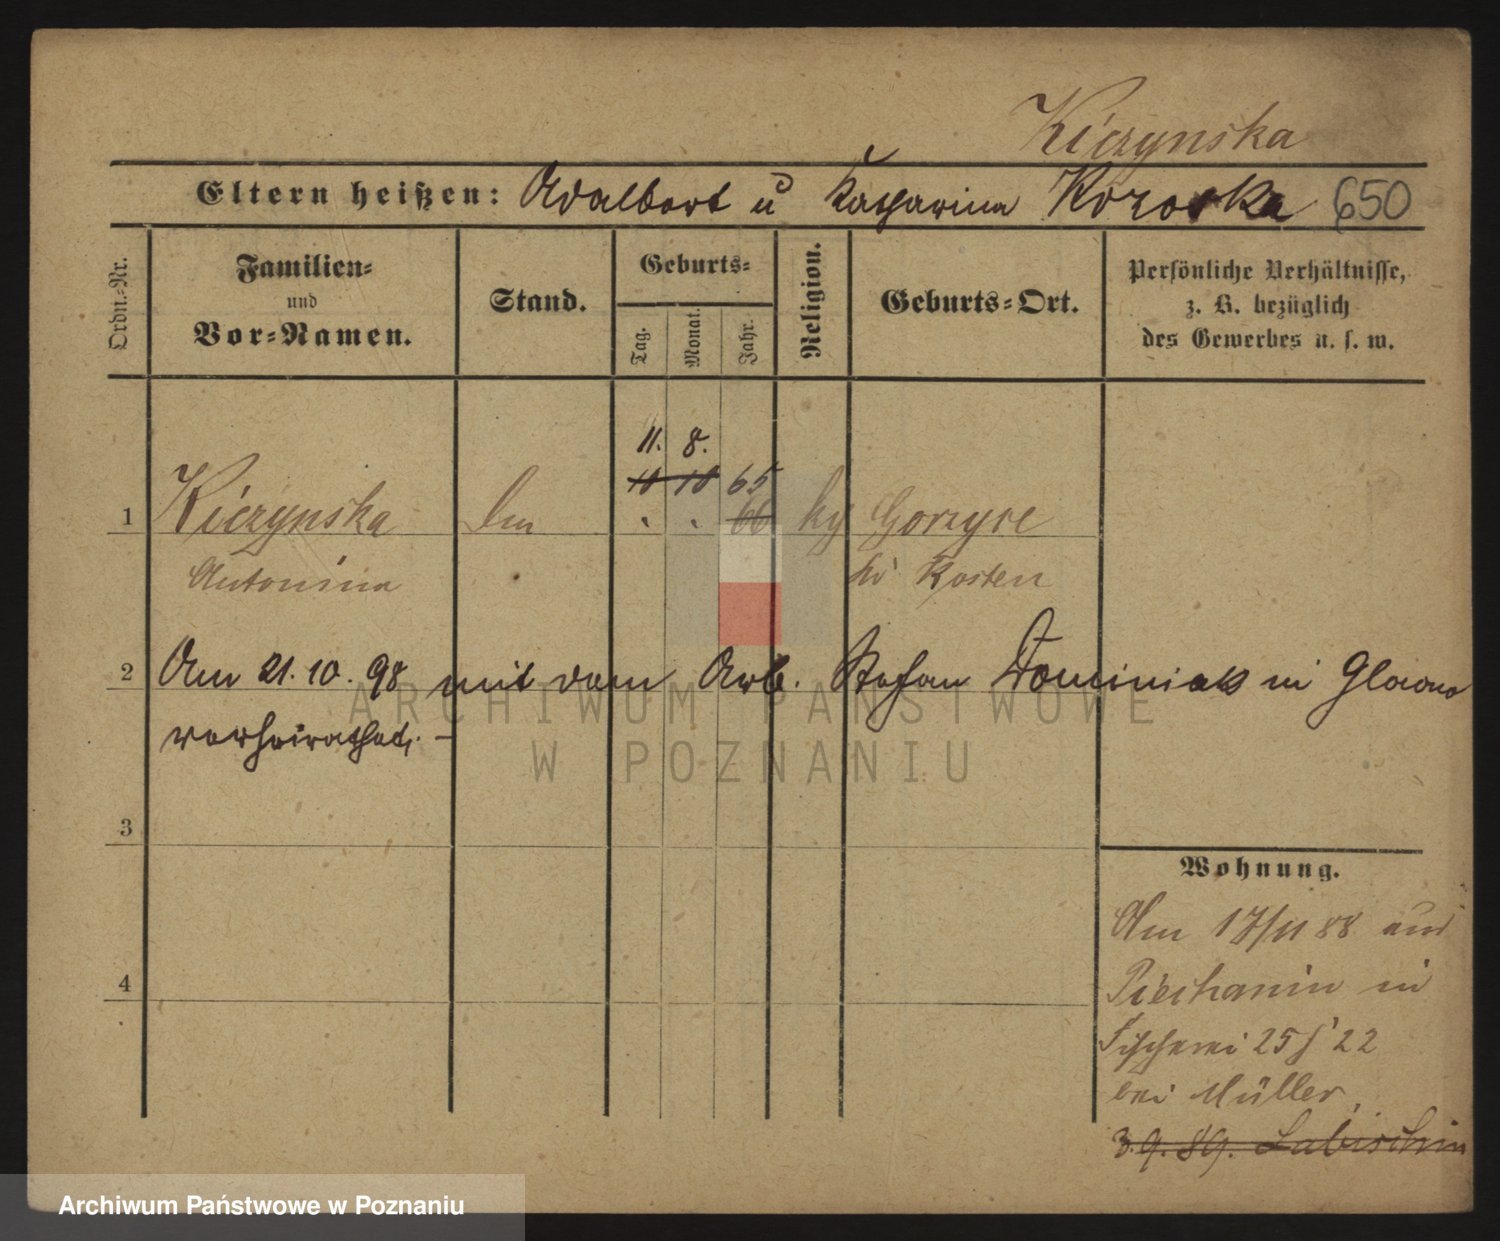 Kiczynska
Eltern heißen: Adalbert u Katharina 650
Ordn.-Nr.
Familien-
und
Vor-Namen.
Stand.
Geburts-
Tag.
Monat.
Jahr.
Religion.
Geburts-Ort.
Persönliche Verhältnisse,
z. B. bezüglich
des Gewerbes u. s. w.
11. 8.
10 10 65
1 Kiczynska 66 Gorzyce
Antonina bei Kosten
2 Am 21.10.98 mit dem Arb. Stefan Dominiak in
verheirathet. -
3
Wohnung.
Am 17/11 88 aus
4
Piechanin in
Fischerei 25 22
bei Müller,
3.9.89. Labischin
ARCHIWUM PAŃSTWOWE
W POZNANIU
Archiwum Państwowe w Poznaniu